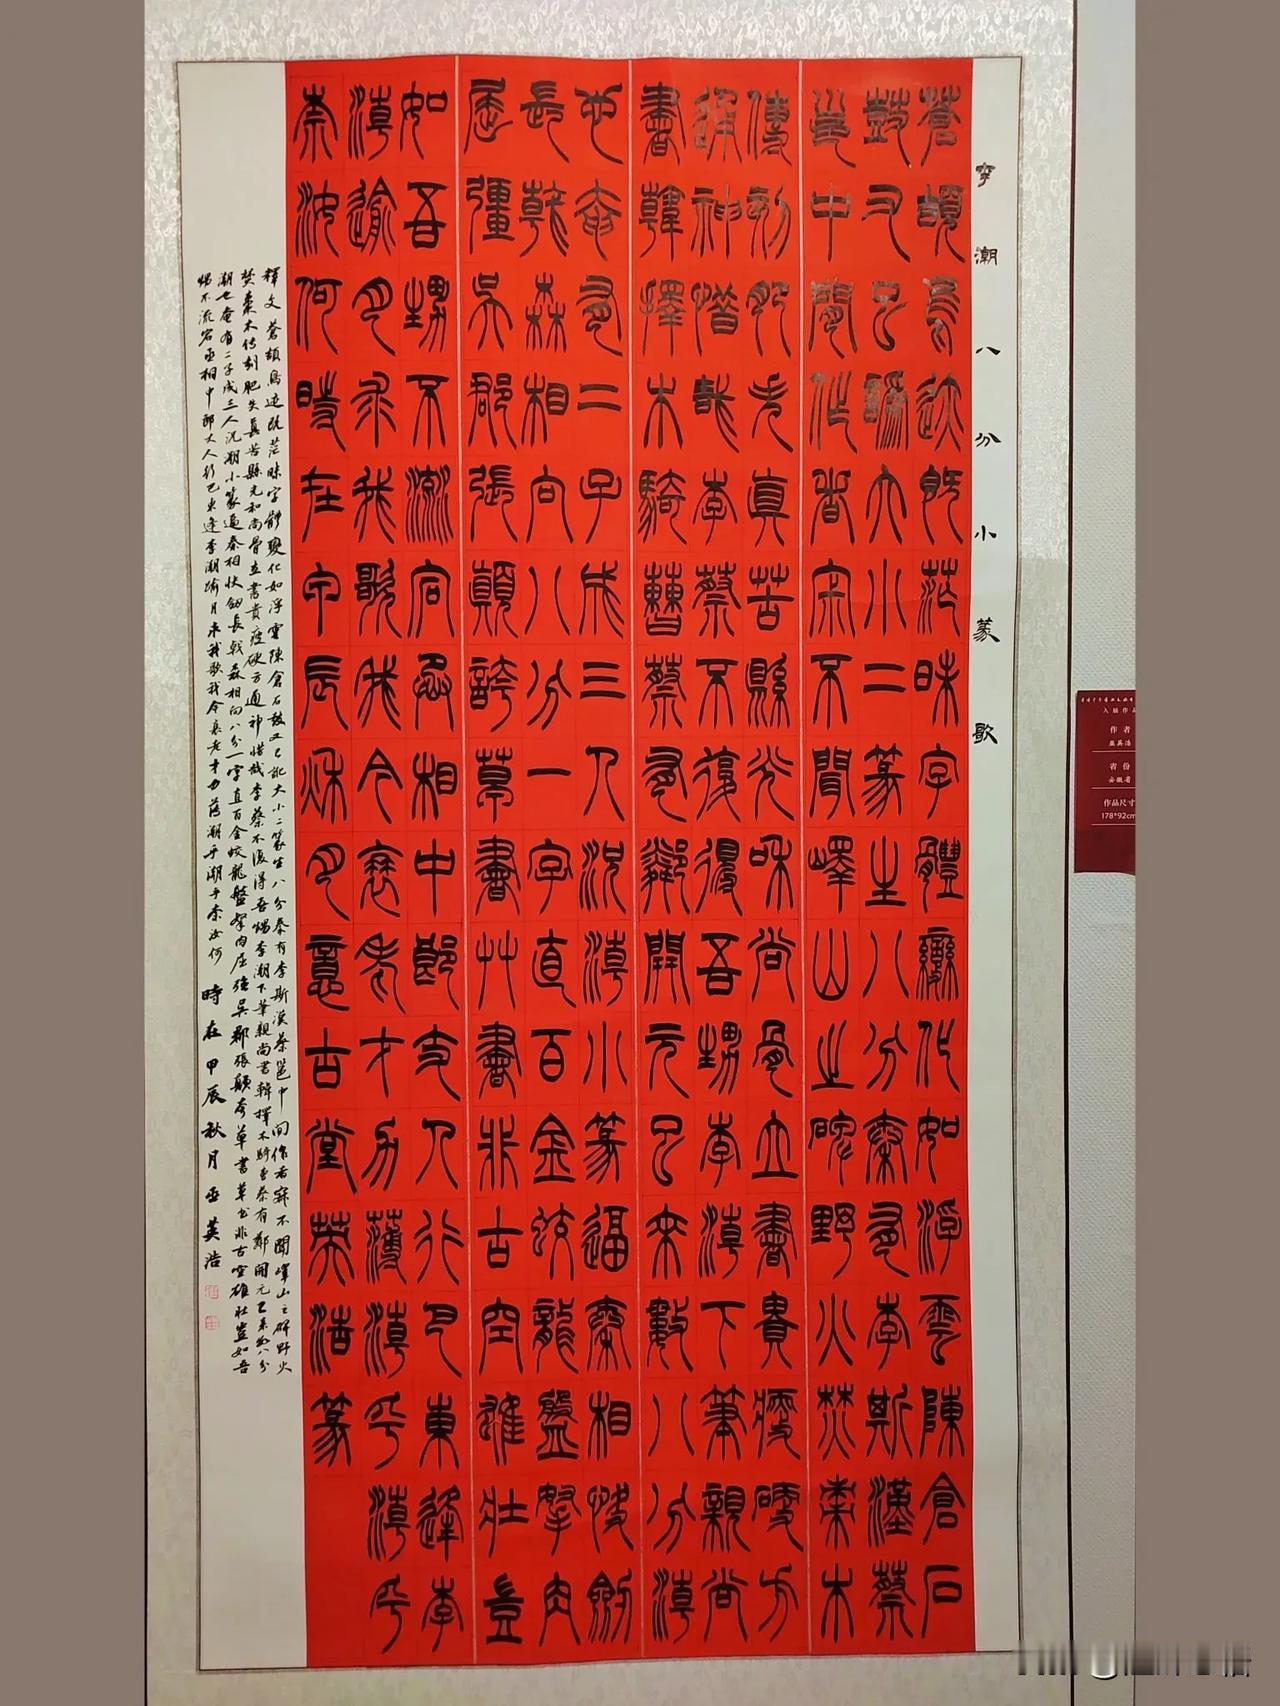 李潮八分小篆歌
蒼頡鳥迹既茫昧字體變化如浮雲陳倉石
鼓又已訛大小二篆生八分秦有李斯漢蔡
邕中間作者寂不聞嶧山之碑野火焚棗木
傳刻肥失真苦縣光和尚骨立書貴瘦硬方
通神惜哉李蔡不復得吾甥李潮下筆親尚
書韓擇木騎曹蔡有鄰開元已來數八分潮
也奄有二子成三人況潮小篆逼秦相快劍
長戟森相向八分一字直百金蛟龍盤拏肉
屈彊吳郡張顛誇草書草書非古空雄壯豈
如吾甥不流宕丞相中郎丈人行巴東逢李
潮逾月求我歌我今衰老才力薄潮乎潮乎
奈汝何時在甲辰秋月意古堂英浩篆
釋文 蒼頡鳥迹既茫昧字體變化如浮雲陳倉石鼓又已訛大小二篆生八分秦有李斯漢蔡邕中間作者寂不聞嶧山之碑野火
焚棗木传刻肥失真苦縣光和尚骨立書貴瘦硬方通神惜哉李蔡不復得吾甥李潮下筆親尚書韓擇木騎曹蔡有鄰開元已來數八分
潮也奄有二子成三人況潮小篆逼秦相快劍長戟森相向八分一字直百金蛟龍盤拏肉屈强吳郡張顛夸草書草書非古空雄壯豈如吾
甥不流宕丞相中郎丈人行巴東逢李潮逾月求我歌我今衰老才力薄潮乎潮乎奈汝何 時在甲辰秋月巫英浩
入展作品
作者
巫英浩
省份
安徽省
作品尺寸
178*92cm